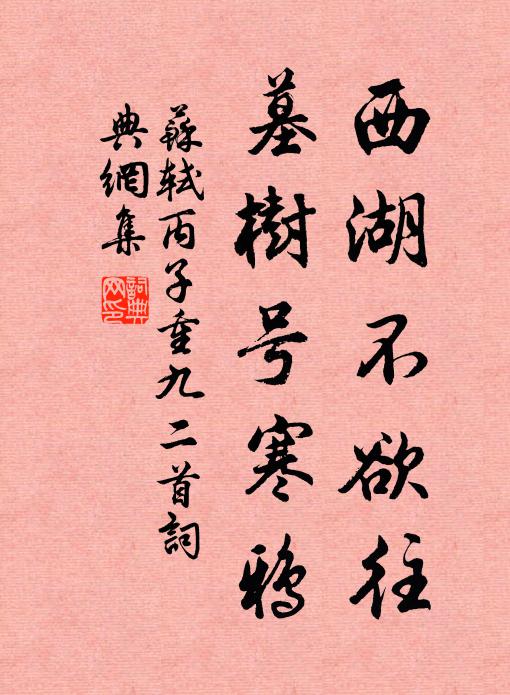 西湖不欲往
墓樹号寒鸦
蘇軾丙子重九二首詞
典網集
詞典
网印